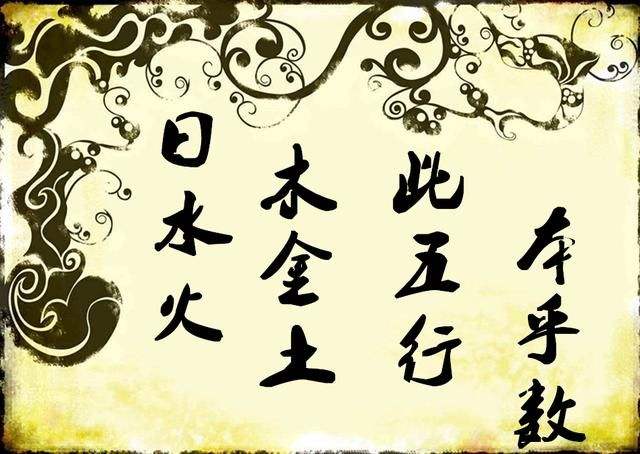 日水火
木金土
此五行
本乎数